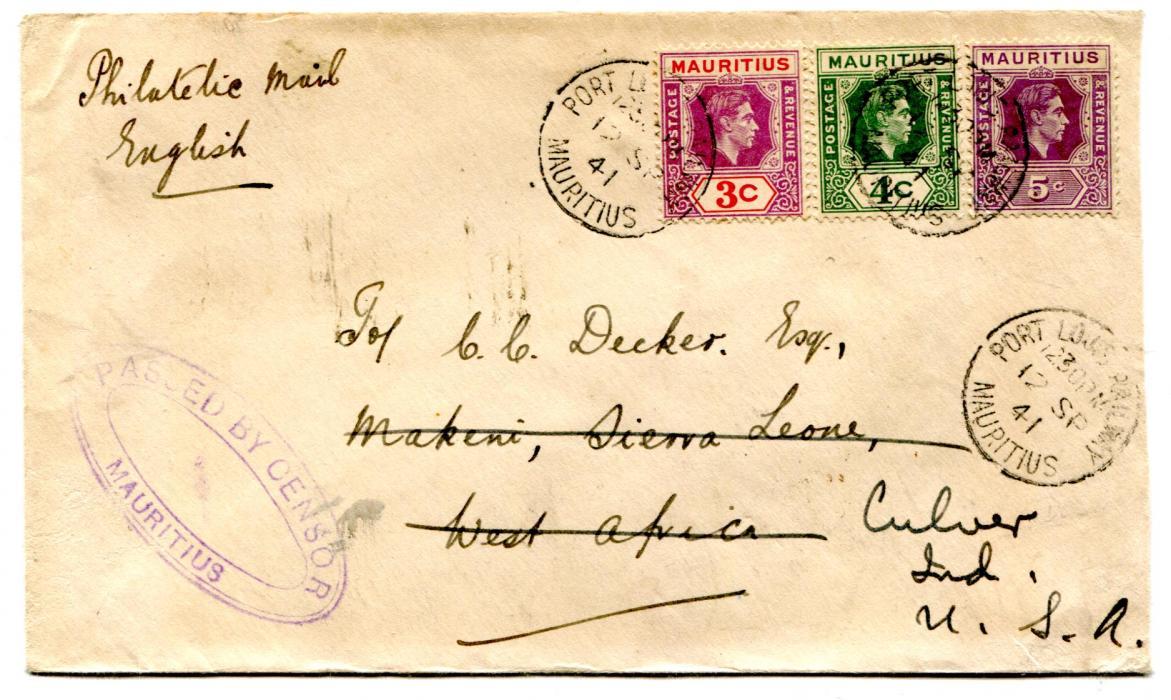 Philatelic Mail
English
MAURITIUS
POSTAGE
& REVENUE
3c
MAURITIUS
POSTAGE
& REVENUE
4c
MAURITIUS
POSTAGE
& REVENUE
5c
PORT
12 SP
41
MAURITIUS
To/ C. C. Decker. Esq.,
Makeni, Sierra Leone,
West Africa
Culver
Ind.
U. S. A.
PORT LOUIS RAILWAY
1230PM
12 SP
41
MAURITIUS
PASSED BY CENSOR
MAURITIUS